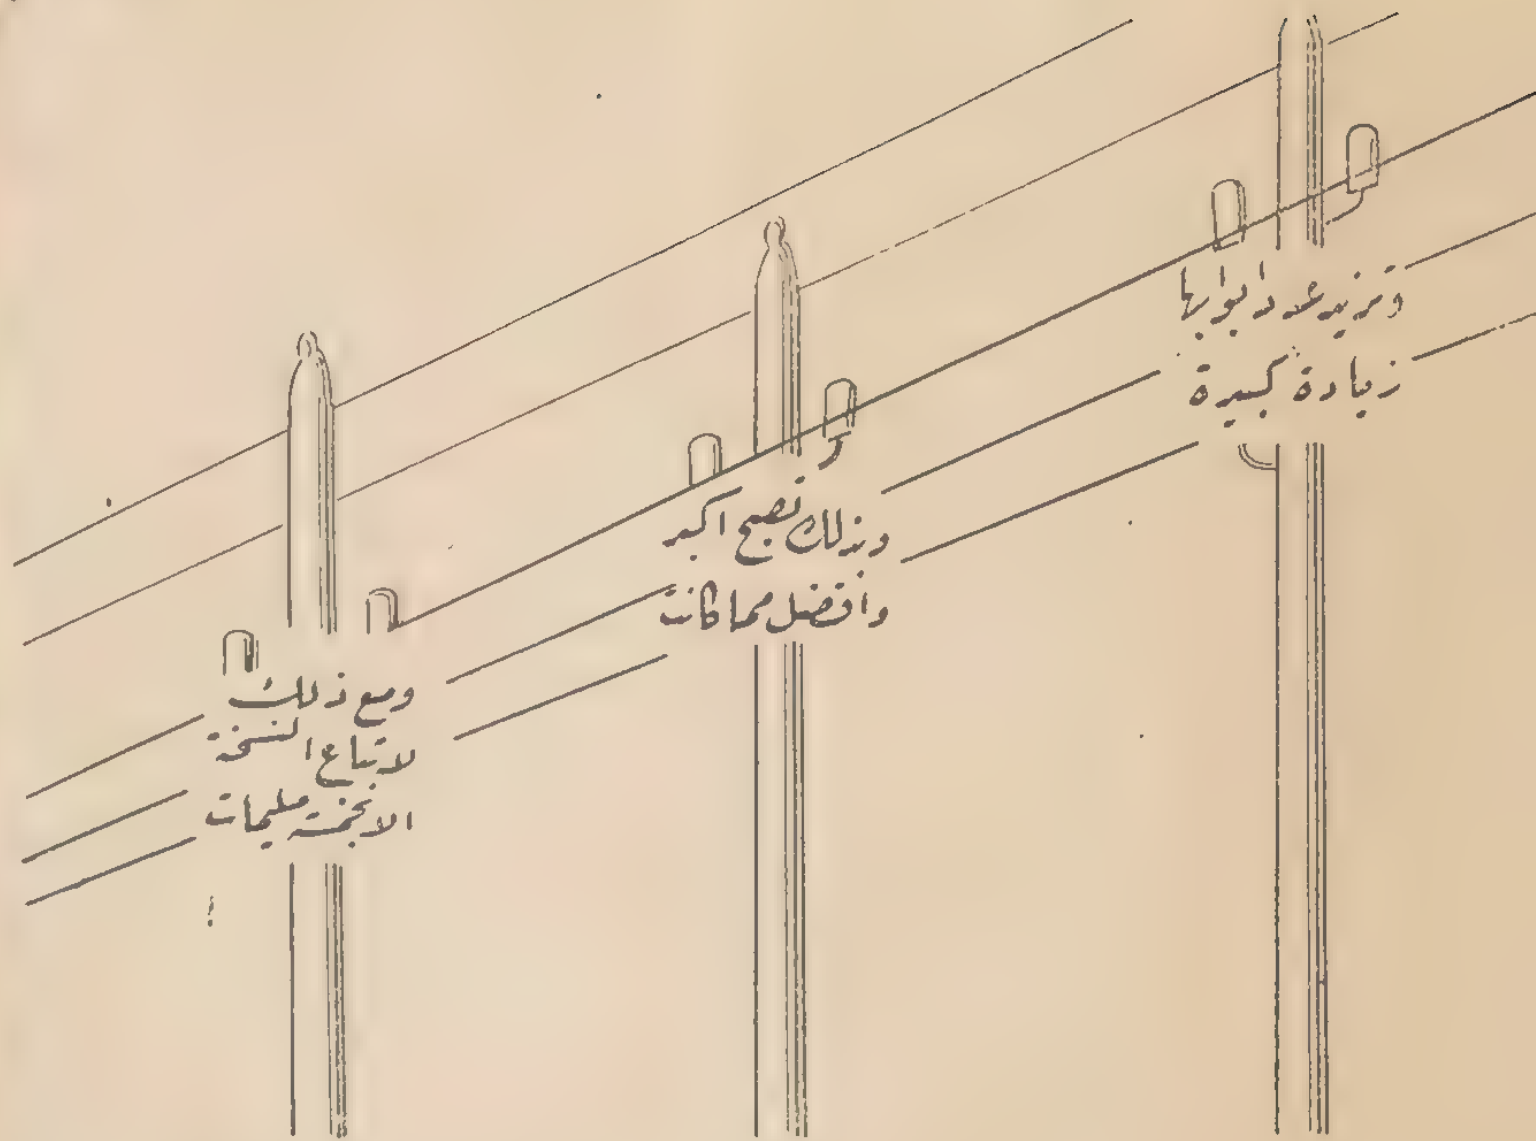 وتزيد عدد ابوابها
زيادة كبيرة
وبذلك تصبح اكبر
وافضل مما كانت
ومع ذلك
لا تباع النسخة
الا بخمسة مليمات